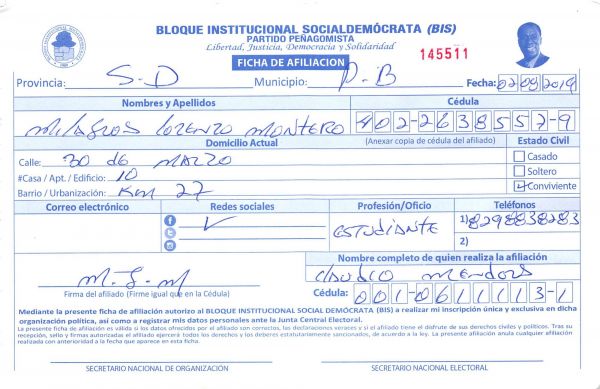 BLOQUE INSTITUCIONAL SOCIALDEMÓCRATA (BIS)
PARTIDO PEÑAGOMISTA
Libertad, Justicia, Democracia y Solidaridad
FICHA DE AFILIACION
145511
Provincia: S-D Municipio: P.B Fecha: 02 08 2019
Nombres y Apellidos Cédula
Milagros Lorenzo Montero 402-2638557-9
Domicilio Actual (Anexar copia de cédula del afiliado) Estado Civil
Calle: 30 de Marzo
#Casa / Apt. / Edificio: 10
Barrio / Urbanización: Km 27
Casado
Soltero
Conviviente
Correo electrónico Redes sociales Profesión/Oficio Teléfonos
Estudiante
1) 8298838283
2)
Nombre completo de quien realiza el afiliación
M. L. M Claudio Mendoza
Firma del afiliado (Firme igual que en la Cédula) Cédula: 001-0611113-1
Mediante la presente ficha de afiliación autorizo al BLOQUE INSTITUCIONAL SOCIAL DEMÓCRATA (BIS) a realizar mi inscripción única y exclusiva en dicha
organización política, así como a registrar mis datos personales ante la Junta Central Electoral.
La presente ficha de afiliación es válida si los datos ofrecidos por el afiliado son correctos, las declaraciones veraces y si el afiliado tiene el disfrute de sus derechos civiles y políticos. Tras su
recepción, sello y firmas autorizadas el afiliado ejercerá todos los derechos y los deberes estatutariamente sancionados, de acuerdo a la ley. La presente afiliación anula cualquier afiliación
realizada con anterioridad a la fecha que aparece en esta ficha.
SECRETARIO NACIONAL DE ORGANIZACIÓN SECRETARIO NACIONAL ELECTORAL